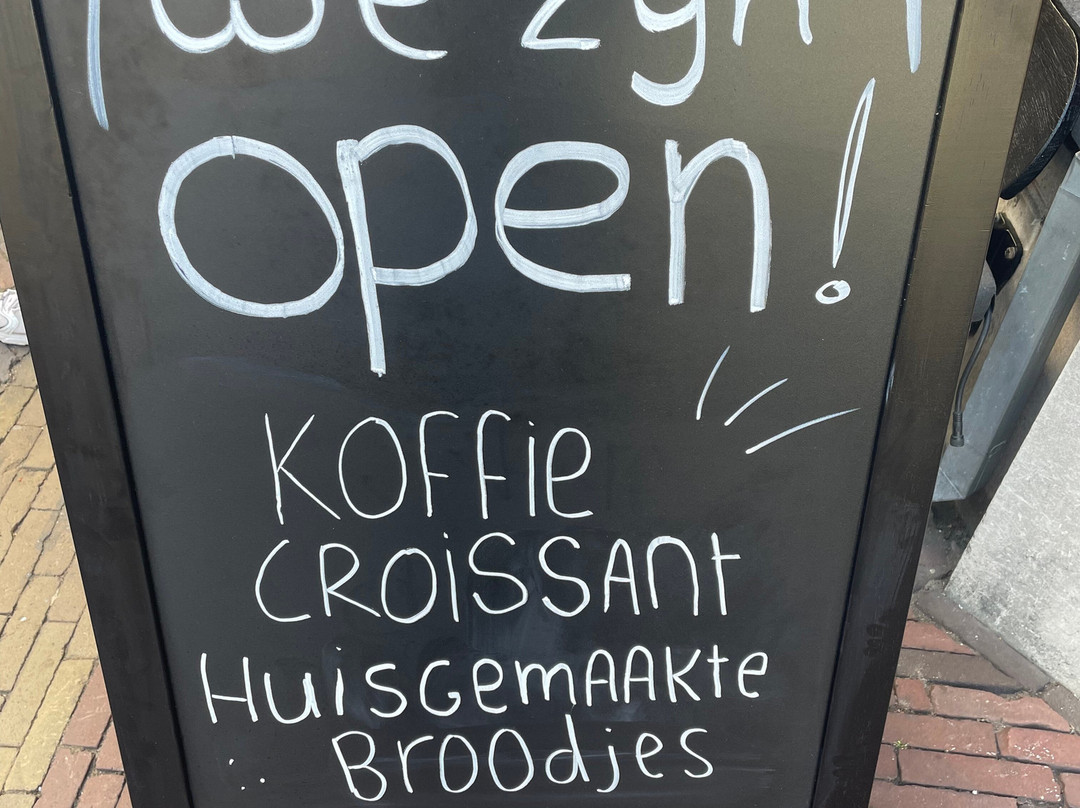 we zijn
open!
Koffie
Croissant
Huisgemaakte
Broodjes